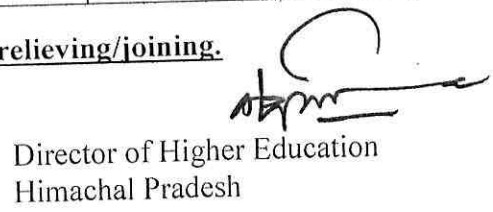 relieving/joining.
Director of Higher Education
Himachal Pradesh